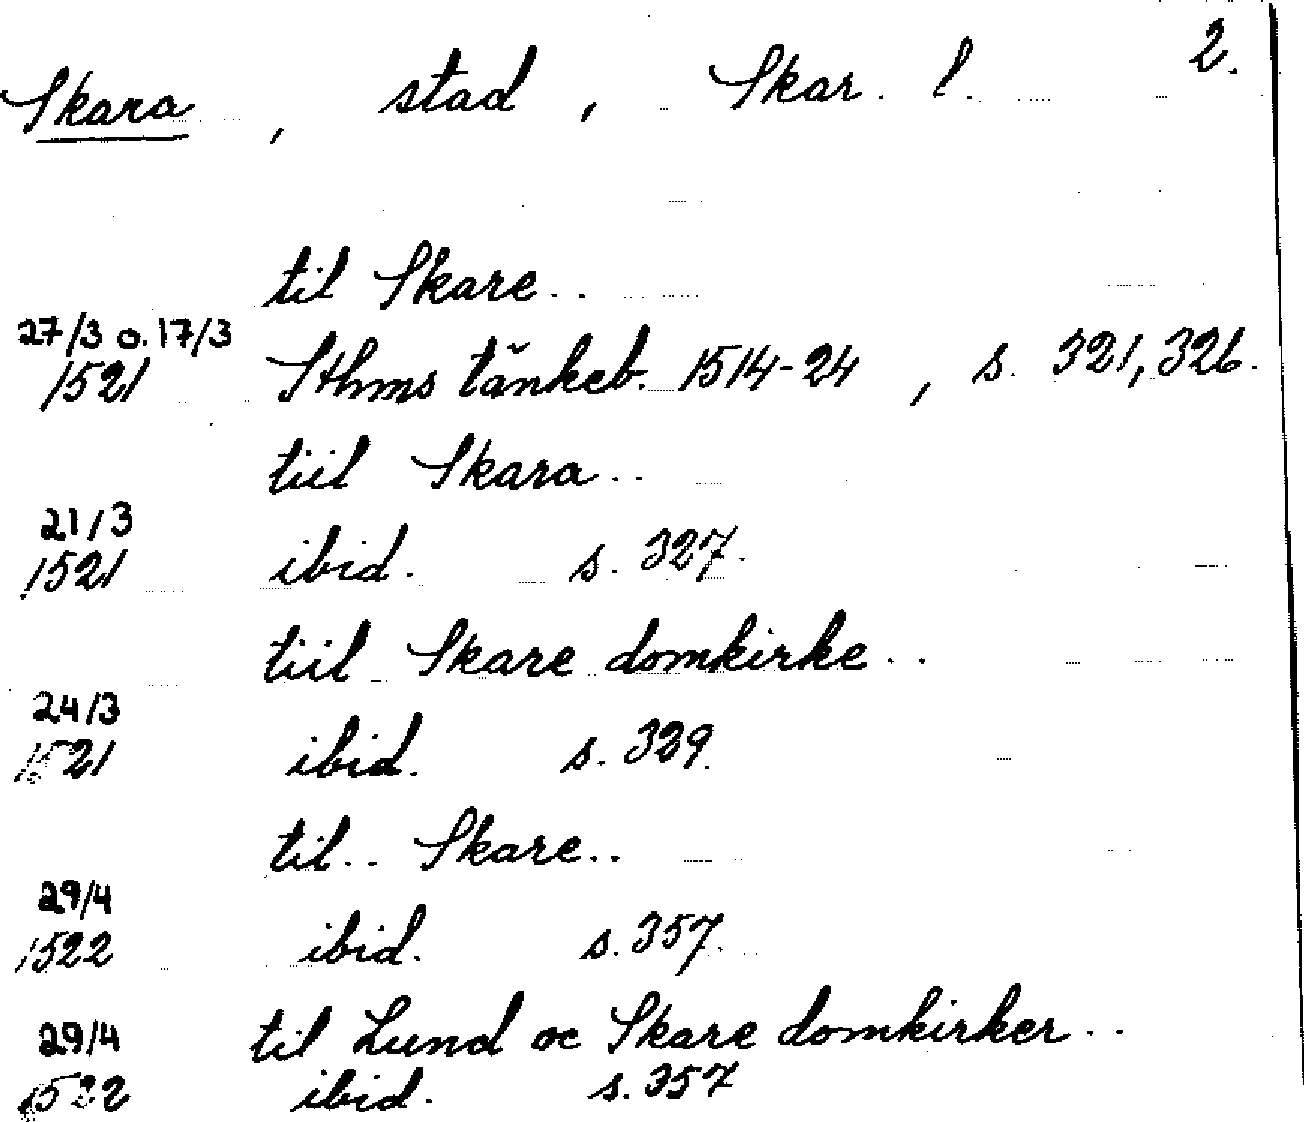 2.
Skara, stad, Skar. l.
til Skare..
27/3 o. 17/3
1521 Sthms tänkeb. 1514-24, s. 321, 326.
tiil Skara..
21/3
1521 ibid. s. 327.
tiil Skare domkirke..
24/3
1521 ibid. s. 329.
til.. Skare..
29/4
1522 ibid. s. 357.
29/4 til Lund oc Skare domkirker..
1522 ibid. s. 357